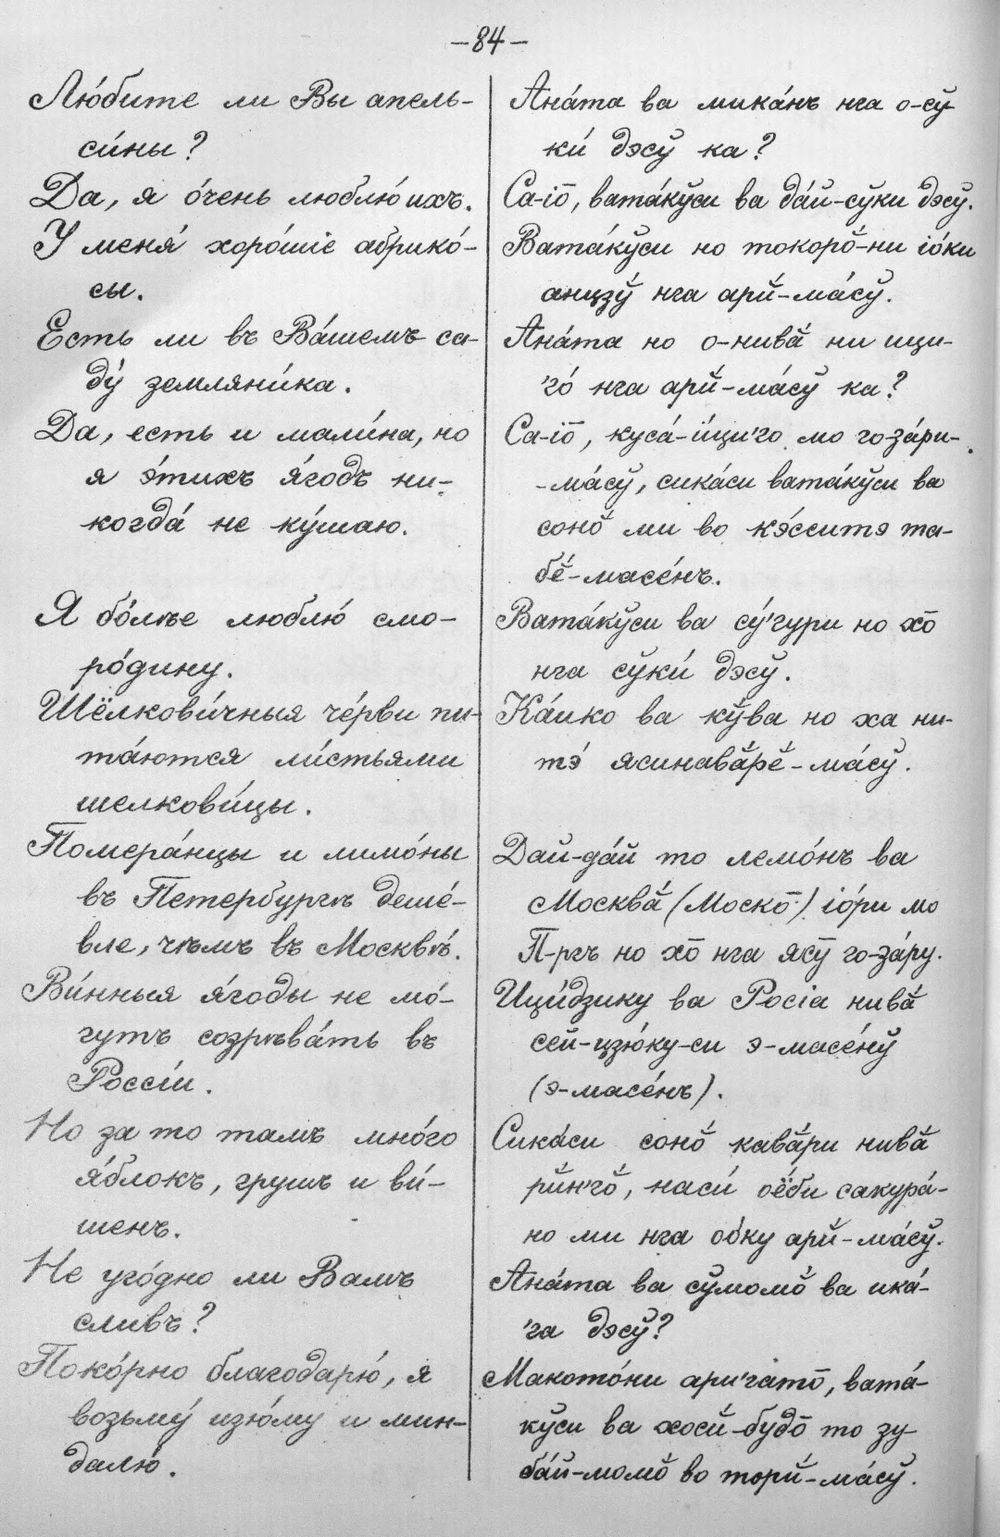 —84—
Лю́бите ли Вы апель-
си́ны?
Да, я о́чень люблю́ ихъ.
У меня́ хоро́шіе абрико́-
сы.
Есть ли въ Ва́шемъ са-
ду́ земляни́ка.
Да, есть и мали́на, но
я э́тихъ я́годъ ни-
когда́ не ку́шаю.
Я бо́лѣе люблю́ смо-
ро́дину.
Шёлкови́чныя че́рви пи-
та́ются ли́стьями
шелкови́цы.
Помера́нцы и лимо́ны
въ Петербургѣ деше́-
вле, чѣмъ въ Москвѣ́.
Ви́нныя я́годы не мо́-
гутъ созрѣва́ть въ
Россі́и.
Но за то тамъ мно́го
я́блокъ, грушъ и ви́-
шенъ.
Не уго́дно ли Вамъ
сливъ?
Поко́рно благодарю́, я
возьму́ изю́му и мин-
далю́.
Ана́та ва мика́нъ нга о-сў-
ки́ дэсў ка?
Са-іо̄, вата́кўси ва да́й-сўки дэсў.
Вата́кўси но токоро̆-ни іо́ки
анцзў нга арй-ма́сў.
Ана́та но о-нивӑ ни ици-
'го́ нга арй-ма́сў ка?
Са-іо̄, куса́-и́ци'го мо го-за́ри-
-ма́сў, сика́си вата́кўси ва
соно̆ ми во кэ́сситэ та-
бӗ-масе́нъ.
Вата́кўси ва су́'гури но хо̄
нга сўки́ дэсў.
Ка́ико ва кўва но ха ни-
тэ́ ясинавӑрӗ-ма́сў.
Дай-да́й то лемо́нъ ва
Москвӑ (Моско̄) іо́ри мо
П-ргъ но хо̄ нга ясў го-за́ру.
Ици́дзику ва Росіа нивӑ
сей-цзю́ку-си э-масе́нў
(э-масе́нъ).
Сика́си соно̆ кавӑри нивӑ
рйн'го̆, наси́ оёби сакура́-
но ми нга о́ку арй-ма́сў.
Ана́та ва сўмомо̆ ва ика́-
'га дэсў?
Макото́ни ари'гато̄, вата́-
кўси ва хосй-будо̄ то зу-
ба́й-момо̆ во торй-ма́сў.